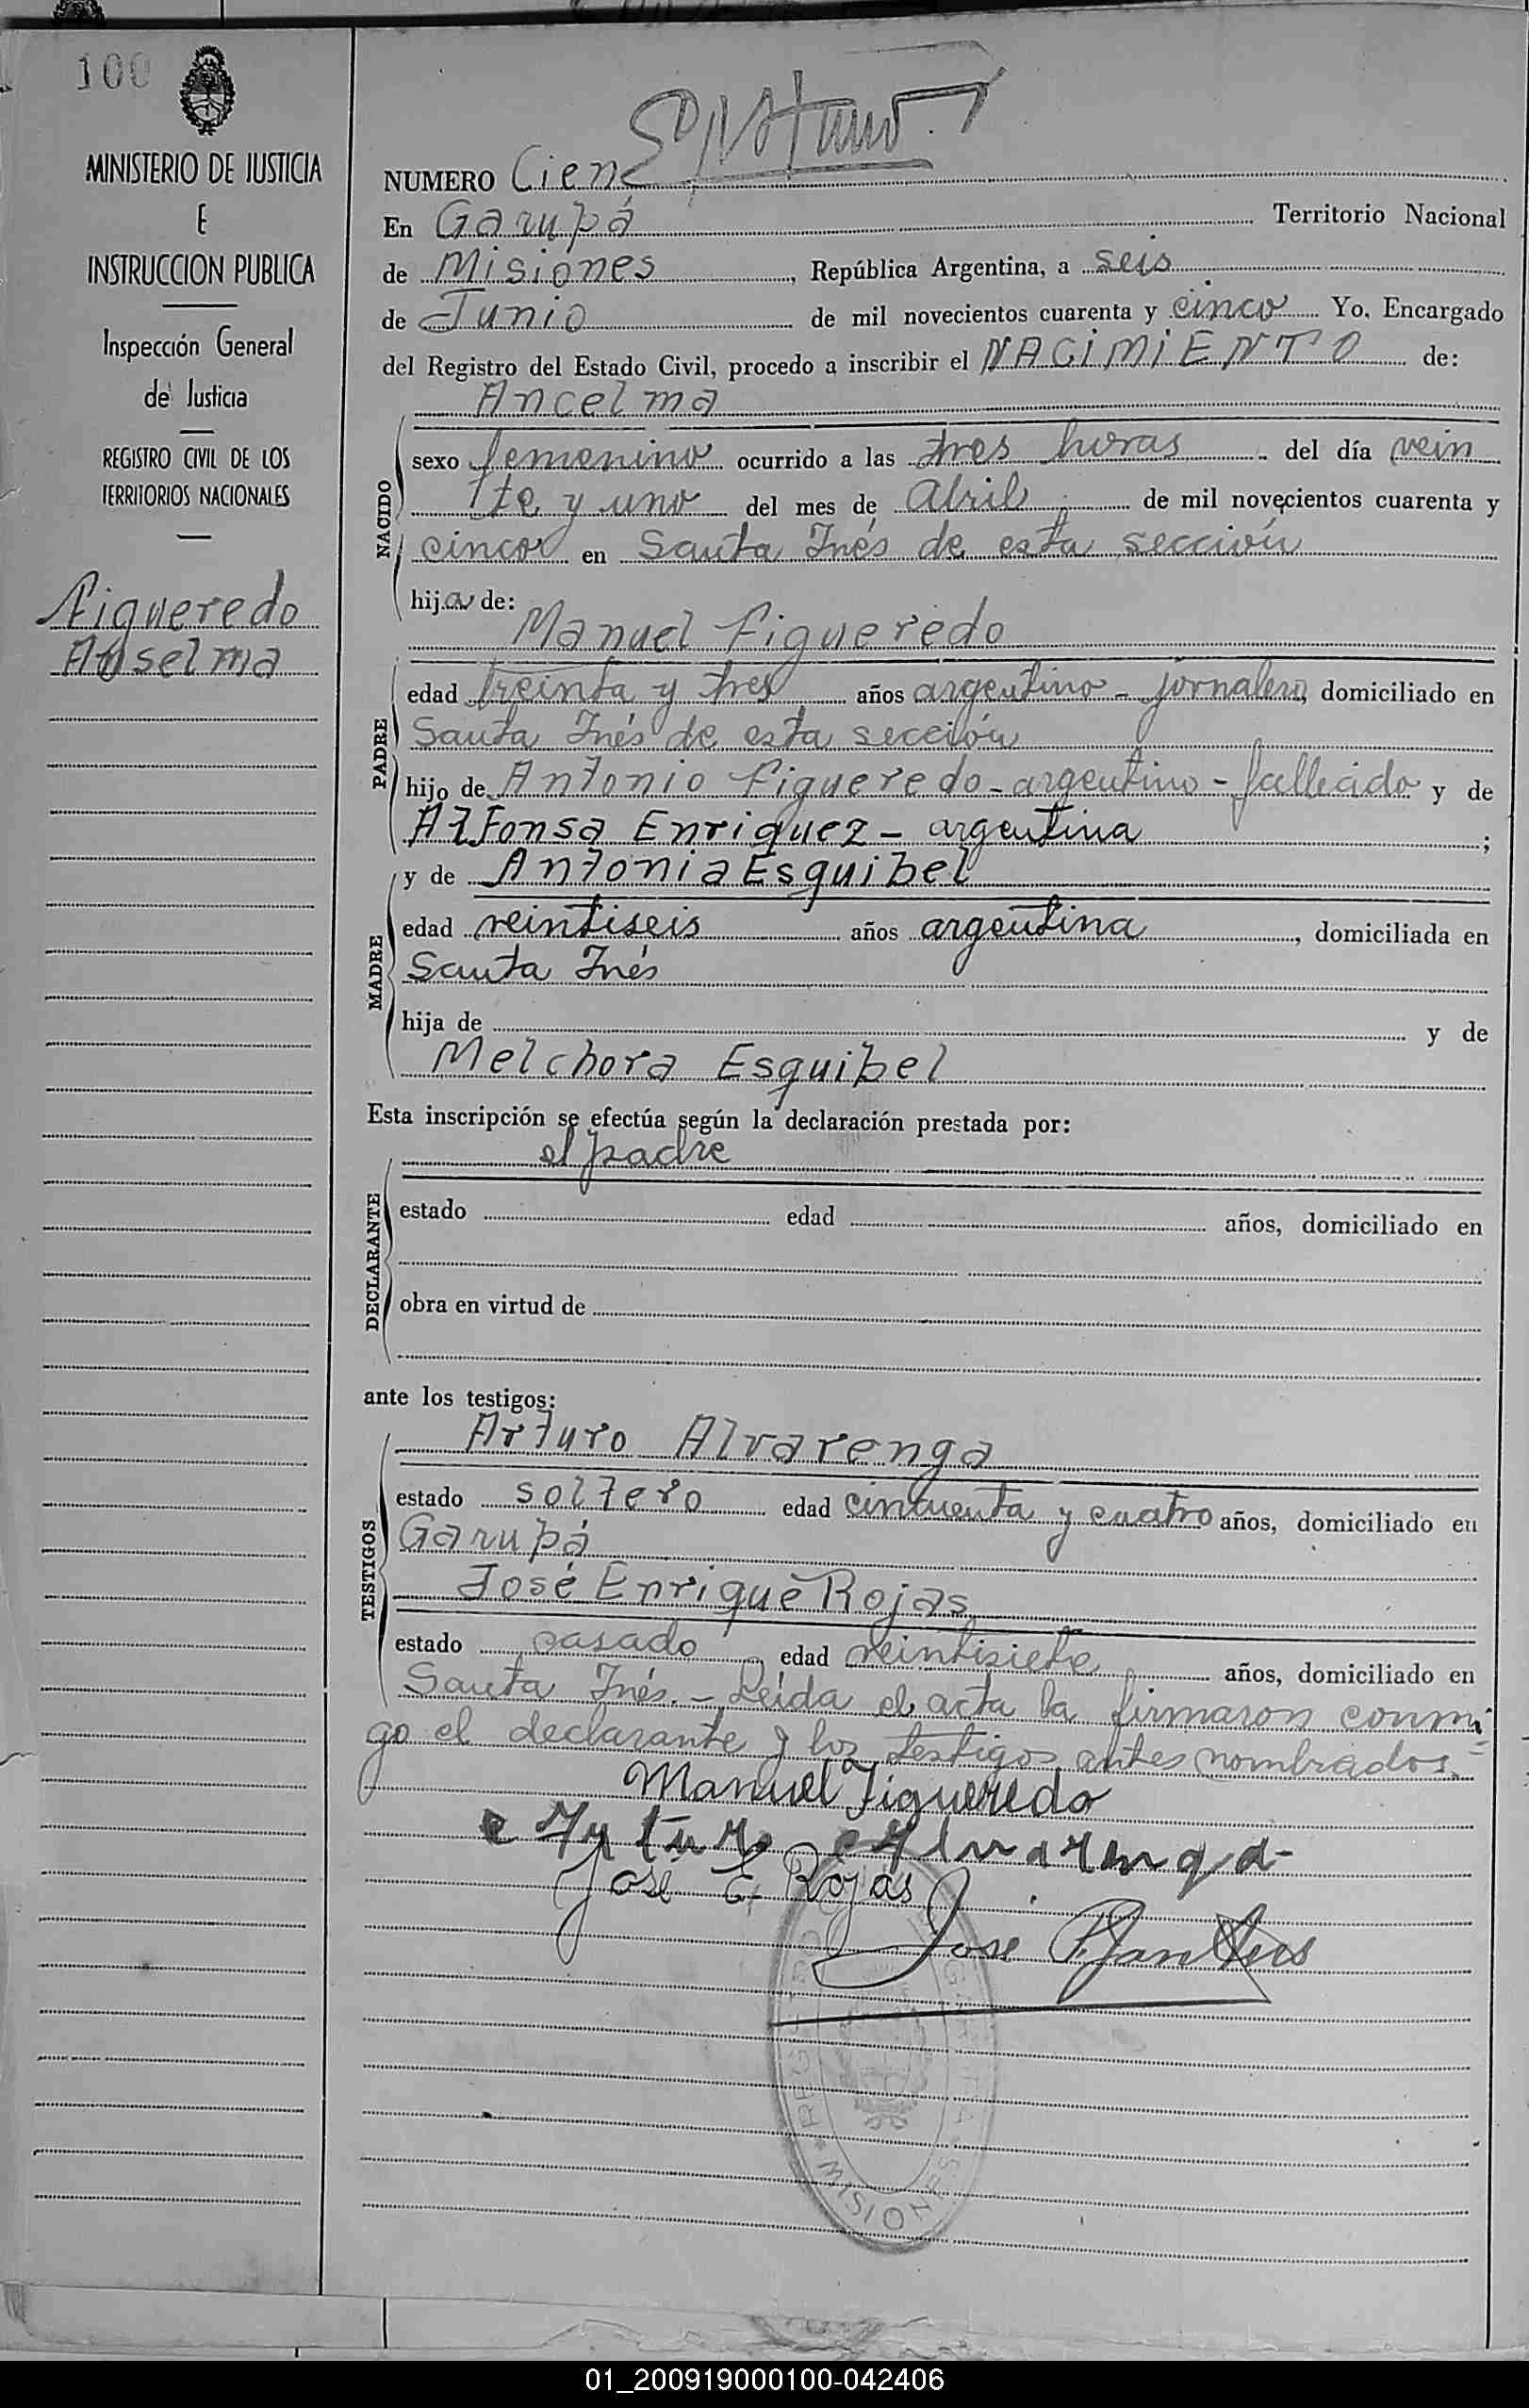 100
MINISTERIO DE JUSTICIA
E
INSTRUCCION PUBLICA
Inspección General
de Justicia
REGISTRO CIVIL DE LOS
TERRITORIOS NACIONALES
Figueredo
Anselma
NUMERO Cien
En Garupá Territorio Nacional
de Misiones, República Argentina, a seis
de Junio de mil novecientos cuarenta y cinco Yo, Encargado
del Registro del Estado Civil, procedo a inscribir el NACIMIENTO de:
Ancelma
NACIDO
sexo femenino ocurrido a las tres horas del día vein
te y uno del mes de Abril de mil novecientos cuarenta y
cinco en Santa Inés de esta sección
hija de:
Manuel Figueredo
PADRE
edad treinta y tres años argentino - jornalero, domiciliado en
Santa Inés de esta sección
hijo de Antonio Figueredo - argentino - fallecido y de
Alfonsa Enriquez - argentina ;
y de Antonia Esquibel
MADRE
edad veintiseis años argentina, domiciliada en
Santa Inés
hija de y de
Melchora Esquibel
Esta inscripción se efectúa según la declaración prestada por:
el padre
DECLARANTE
estado edad años, domiciliado en
obra en virtud de
ante los testigos:
Arturo Alvarenga
TESTIGOS
estado soltero edad cincuenta y cuatro años, domiciliado en
Garupá
José Enrique Rojas
estado casado edad veintisiete años, domiciliado en
Santa Inés. - Leída el acta la firmaron conmi
go el declarante y los testigos antes nombrados. =
Manuel Figueredo
Arturo Alvarenga
José E. Rojas
José
MISIONES
01_200919000100-042406